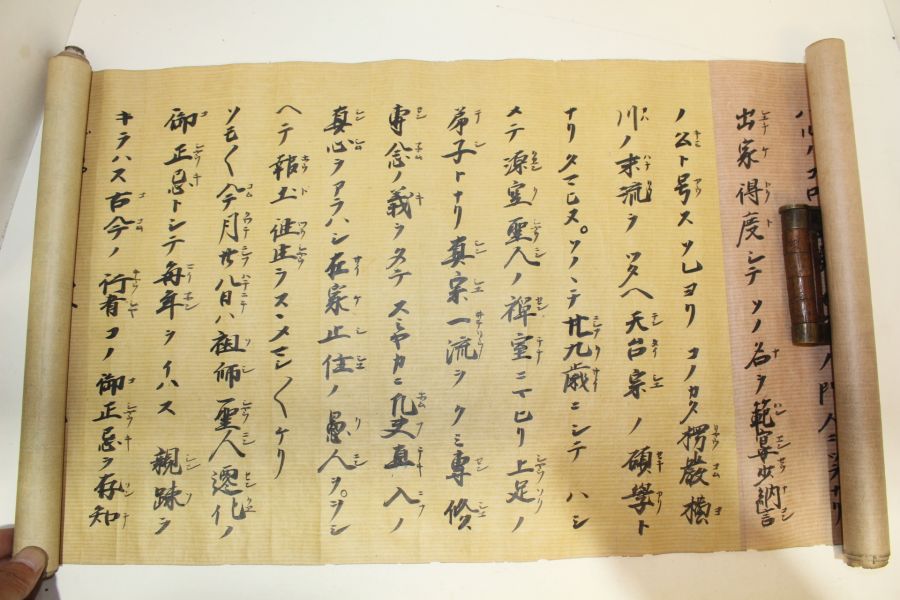 門人トナリ
出家得度シテ ソノ名ヲ範宴少納言
ノ公ト号ス ソレヨリ コノカタ楞嚴横
川ノ末流ヲ ツタヘ天台宗ノ 碩學ト
ナリタマヒヌ。ソノヽチ廿九歳ニシテ ハシ
メテ源空聖人ノ禅室ニマヒリ上足ノ
弟子トナリ真宗一流ヲ クミ専修
専念ノ義ヲタテ スミヤカニ凡夫直入ノ
真心ヲアラハシ在家止住ノ愚人ヲ。ヲシ
ヘテ報土往生ヲスヽメマシ〱ケリ
ソモ〱今月廿八日ハ祖師聖人遷化ノ
御正忌トシテ毎年ヲイハス 親疎ヲ
キラハス古今ノ行者コノ御正忌ヲ存知